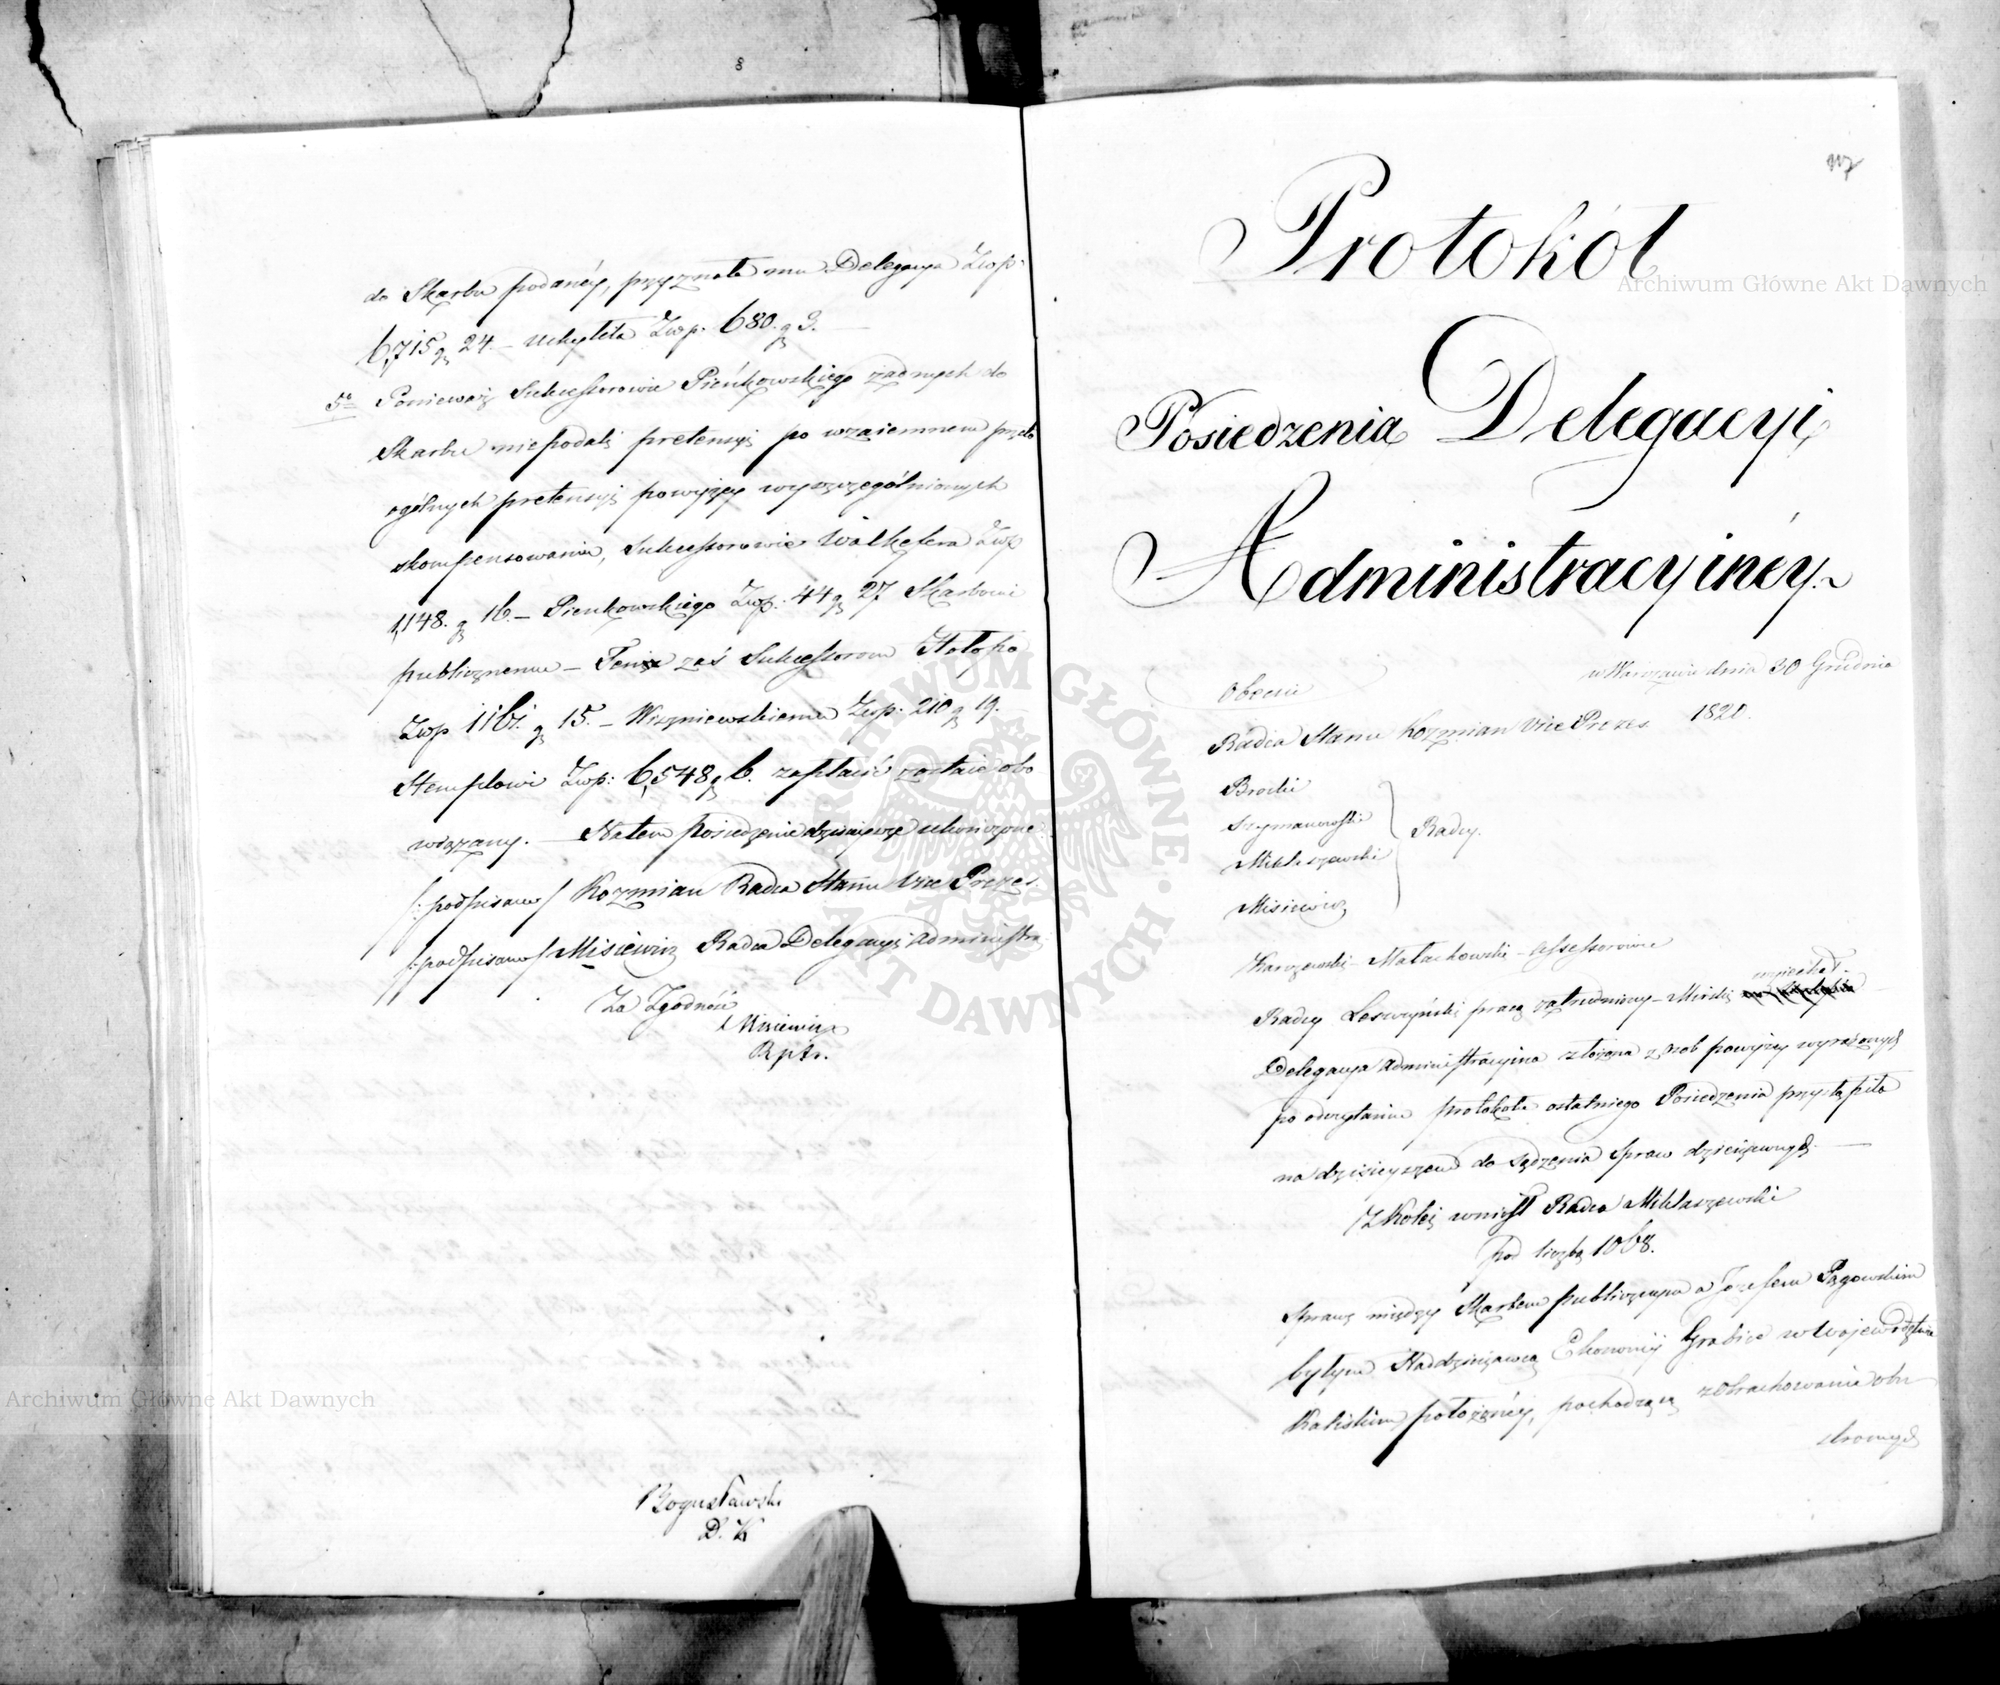 do Skarbu podanéy, przyznała mu Delegacya Złop:
6,715 g 24. – uchyliła Złop. 680. g 3. –
5o Ponieważ Sukcessorowie Pieńkowskiego żadnych do
Skarbu niepodali pretensyi po wzaiemnem
ogólnych pretensyi powyżey wyszczególnionych
skompensowaniu, Sukcessorowie Złop
1,148. g 16. – Pieńkowskiego Złop: 44 g 27 Skarbowi
publicznemu – Tenże zaś Sukcessorom
Złop 1161. g 15. – Wiszniewskiemu Złop: 210 g 19.
Stemplowi Złop: 6,548 g 6. zapłacić zostaie obo
wiązany. – Natem posiedzenie dzisieysze ukończone.
/: podpisano / Kozmian Radca Stanu Vice Prezes.
/: podpisano / Misiewicz Radca Delegacyi Administra
Za Zgodność
Misiewicz
Rptr.
Bogusławski
D. K
117
Protokół
Posiedzenia Delegacyi
Administracyinéy.
w Warszawie dnia 30 Grudnia
1820.
Obecni
Radca Stanu Kozmian Vice Prezes
Brocki
Szymanowski
Miklaszewski
Misiewicz
Radcy.
Karczewski – Małachowski – Assessorowie
wyiechał.
Radcy Leszczyński pracą zatrudniony – Mirski
Delegacya Administracyina złożona z osób powyżey wyrażonych
po odczytaniu protokołu ostatniego Posiedzenia przystąpiła
na dzisieyszem do sądzenia spraw dzisieyszych. –
Z Kolei wniosł Radca Miklaszewski
pod liczbą 1068.
Sprawę między Skarbem publicznym a Józefem Pągowskim
byłym Naddzierżawcą Ekonomij Grabice w Wojewodztwie
Kaliskim położonéy, pochodzącą z Obrachowania obu
stronnych
Archiwum Główne Akt Dawnych
Archiwum Główne Akt Dawnych
ARCHIWUM GŁÓWNE AKT DAWNYCH